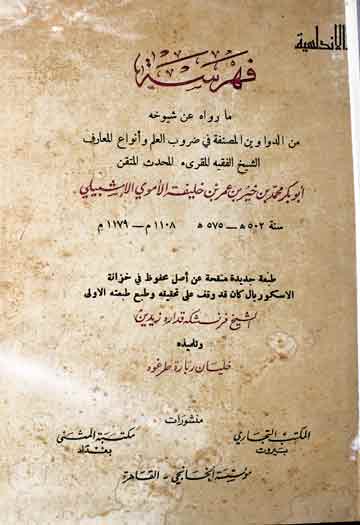 الأندلسية
فهرسة
ما رواه عن شيوخه
من الدواوين المصنفة في ضروب العلم وأنواع المعارف
الشيخ الفقيه المقرىء المحدث المتقن
أبو بكر محمد بن خير بن عمر بن خليفة الأموي الإشبيلي
سنة ٥٠٢ هـ — ٥٧٥ هـ ١١٠٨ م — ١١٧٩ م
طبعة جديدة منقحة عن أصل محفوظ في خزانة
الاسكوريال كان قد وقف على تحقيقه وطبع طبعته الاولى
الشيخ فرنسشكه قداره زيدين
وتلميذه
خليان ربارة طرغوه
منشورات
المكتب التجاري
بيروت
مكتبة المثنى
بغداد
مؤسسة الخانجي - القاهرة